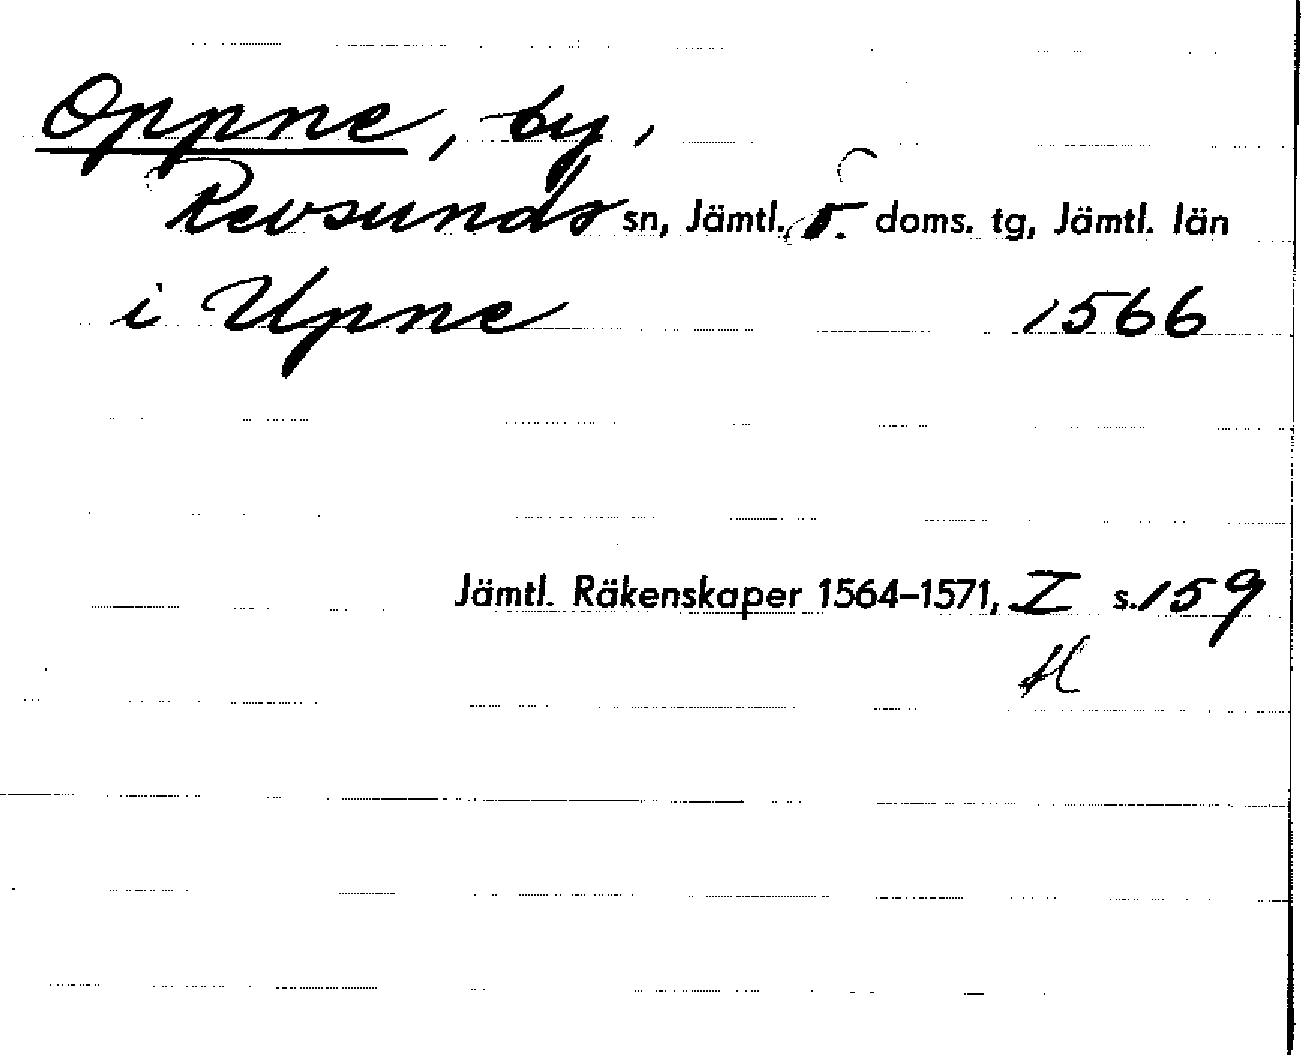 Oppne, by,
Revsunds sn, Jämtl. ö. doms. tg, Jämtl. län
i Upne 1566
Jämtl. Räkenskaper 1564–1571, I s. 159